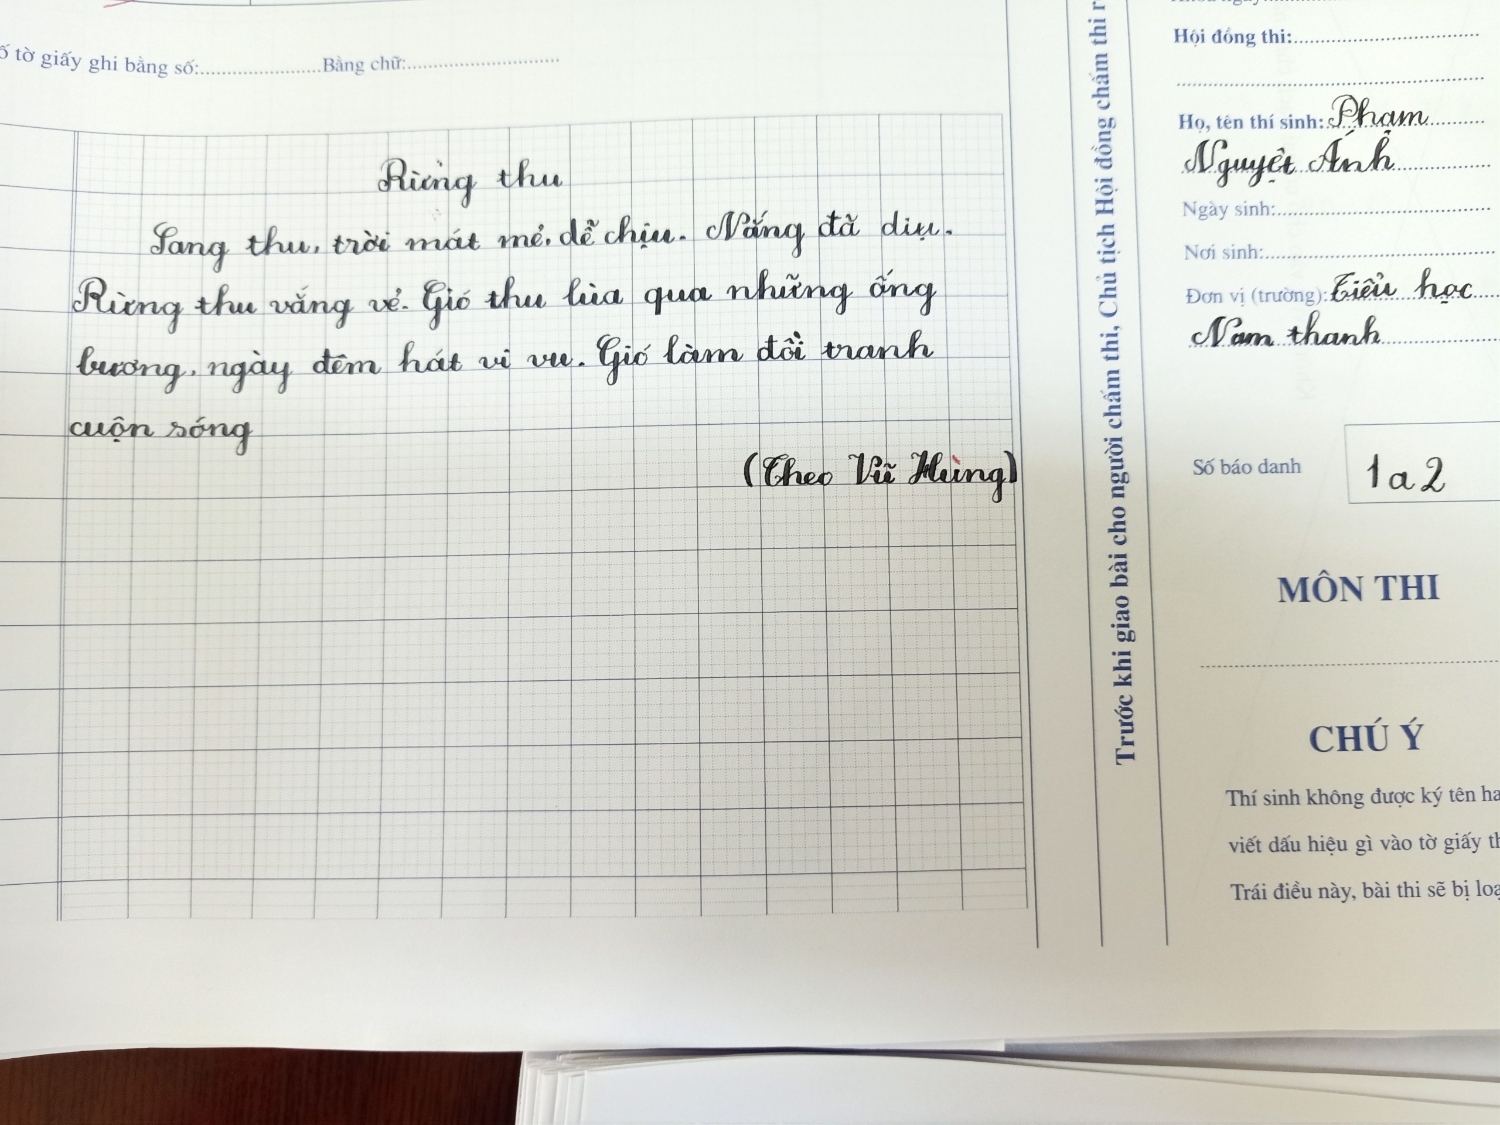 ố tờ giấy ghi bằng số:....................Bằng chữ:..........................
Rừng thu
Sang thu, trời mát mẻ, dễ chịu. Nắng đã dịu.
Rừng thu vắng vẻ. Gió thu lùa qua những ống
bương, ngày đêm hát vi vu. Gió làm đồi tranh
cuộn sóng
(Theo Vũ Hùng)
Trước khi giao bài cho người chấm thi, Chủ tịch Hội đồng chấm thi r
Hội đồng thi:
Họ, tên thí sinh: Phạm
Nguyệt Ánh
Ngày sinh:
Nơi sinh:
Đơn vị (trường): Tiểu học
Nam thanh
Số báo danh 1a2
MÔN THI
CHÚ Ý
Thí sinh không được ký tên ha
viết dấu hiệu gì vào tờ giấy th
Trái điều này, bài thi sẽ bị loạ